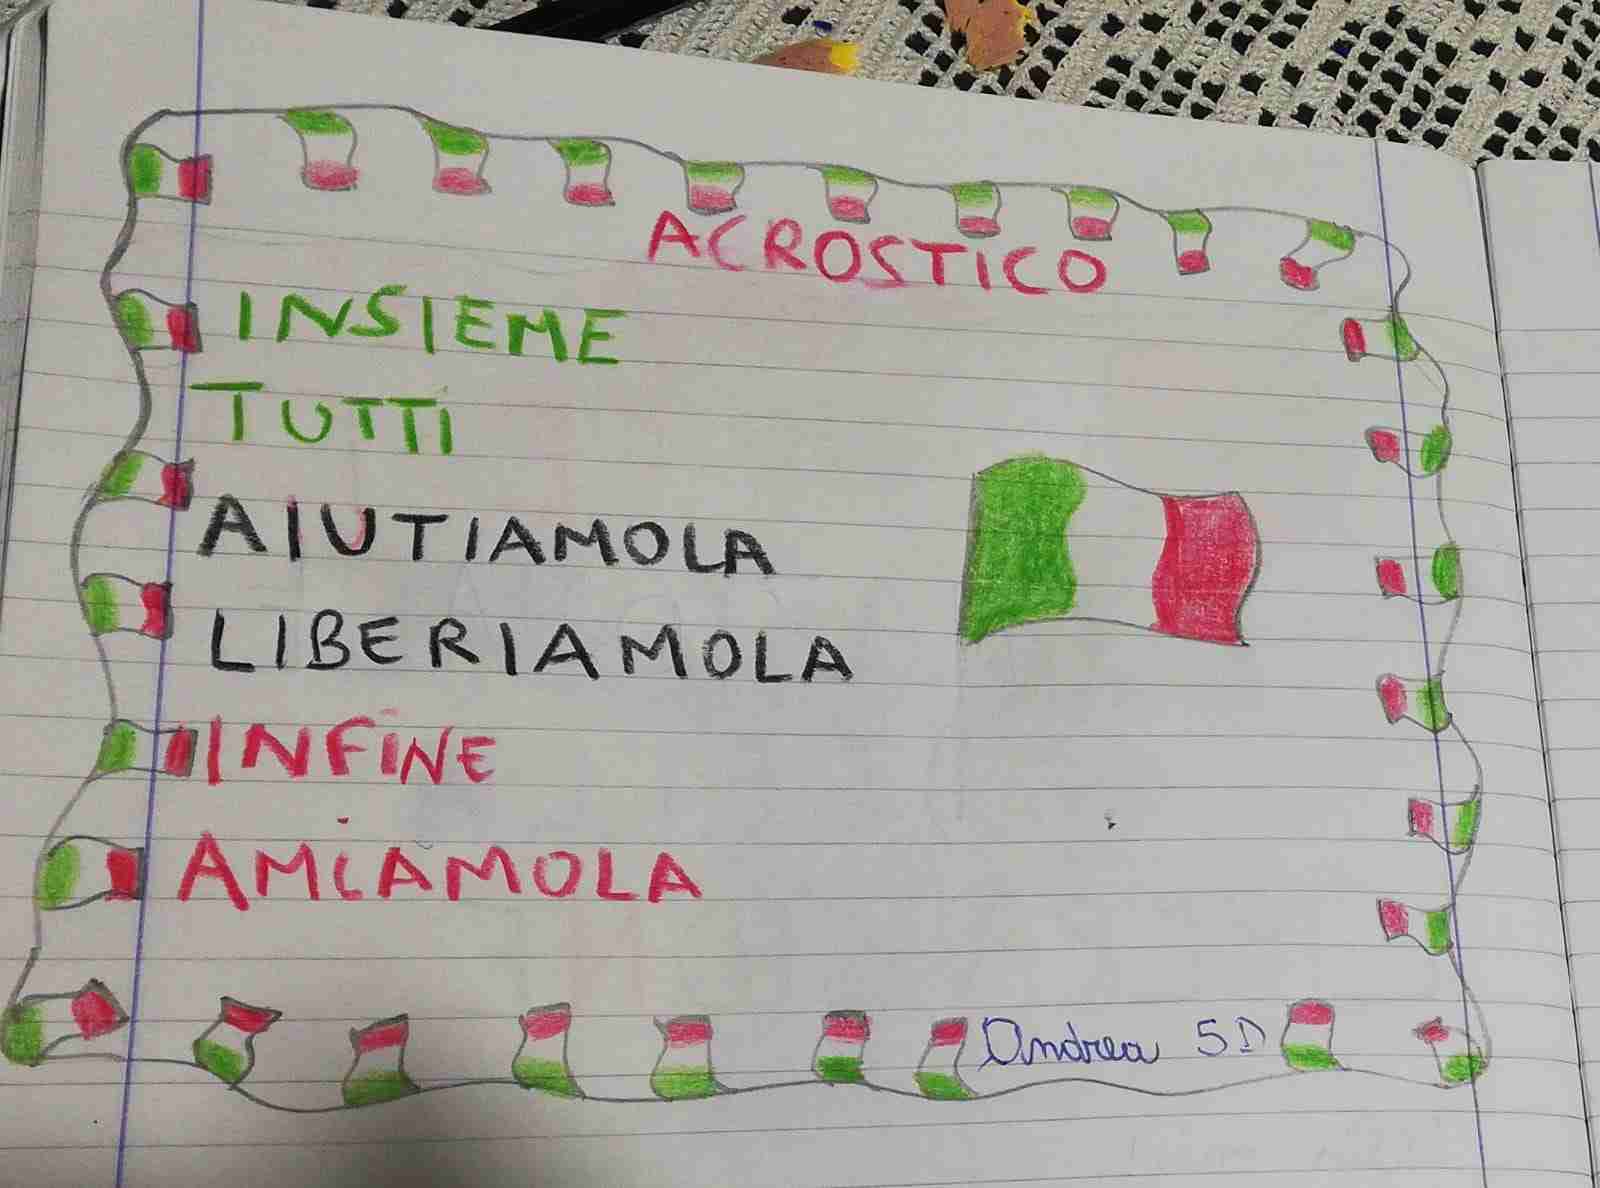 ACROSTICO
INSIEME
TUTTI
AIUTIAMOLA
LIBERIAMOLA
INFINE
AMIAMOLA
Andrea 5D